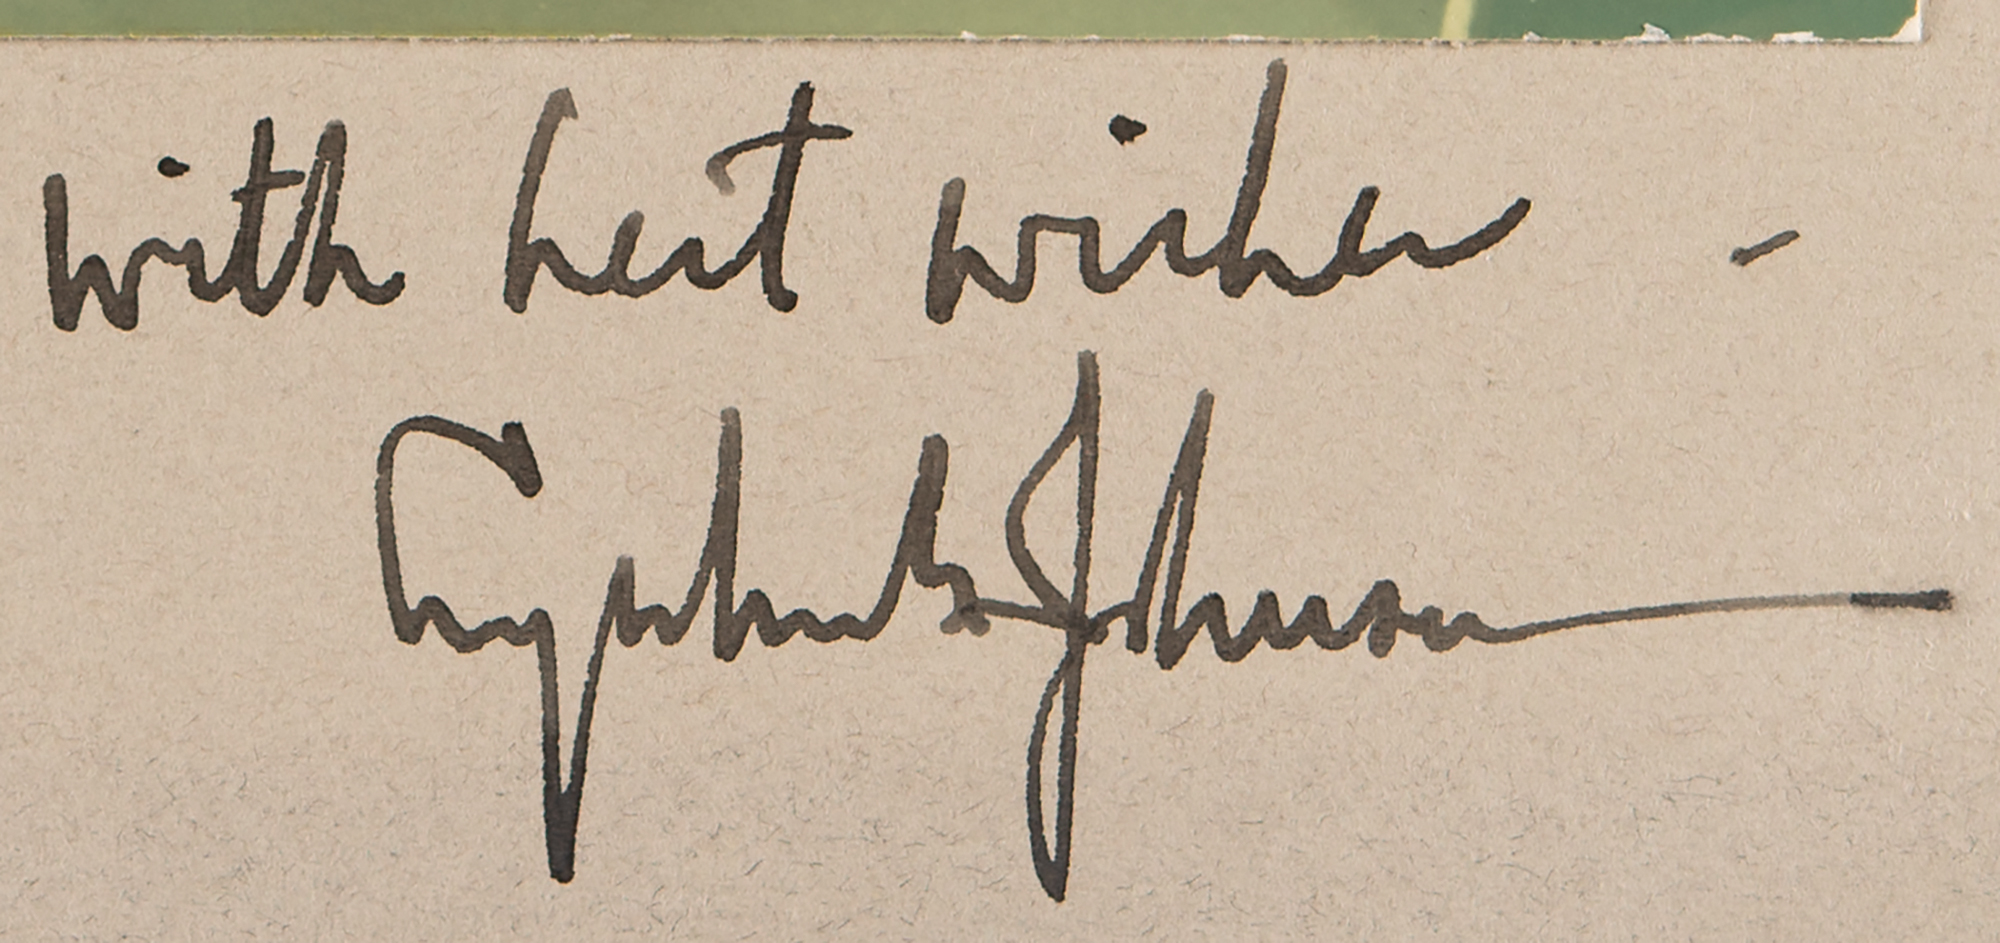 with best wishes -
Lyndon B. Johnson